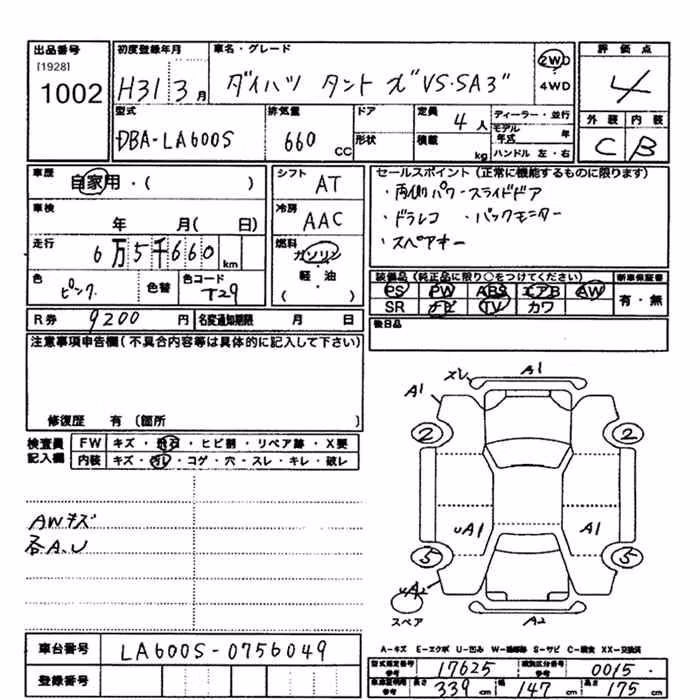 出品番号
[1928]
1002
初度登録年月
H31 3月
車名・グレード
ダイハツ タント X"VS・SA3"
2WD
4WD
評価点
4
型式
DBA-LA600S
排気量
660 CC
ドア
形状
定員
4人
積載 kg
ディーラー・並行
モデル年式 年
ハンドル 左・右
外装 内装
C B
車歴
自家用・( )
シフト
AT
車検
年 月( 日)
冷房
AAC
走行
6万5千660 km
燃料
ガソリン
軽・油
( )
色
ピンク
色替
色コード
T29
セールスポイント(正常に機能するものに限ります)
・両側パワースライドドア
・ドラレコ ・バックモニター
・スペアキー
装備品(純正品に限り○をつけてください) 新車保証書
PS PW ABS エアB AW
SR ナビ TV カワ
有・無
R券 9200 円 名変通知期限 月 日
後日品
注意事項申告欄(不具合内容等は具体的に記入して下さい)
修復歴 有 (箇所 )
検査員記入欄
FW キズ・飛石・ヒビ割・リペア跡・X要
内装 キズ・汚レ・コゲ・穴・スレ・キレ・破レ
AWキズ
各A、U
スレ A1
A1
2 2
UA1 A1
5 5
UA2
スペア
A2
車台番号 LA600S-0756049
登録番号
A-キズ E-エクボ U-凹み W-補修跡 S-サビ C-腐食 XX-交換済
型式指定番号 参考 17625 類別区分番号 参考 0015
車庫証明用 参考 長さ 339 cm 幅 147 cm 高さ 175 cm